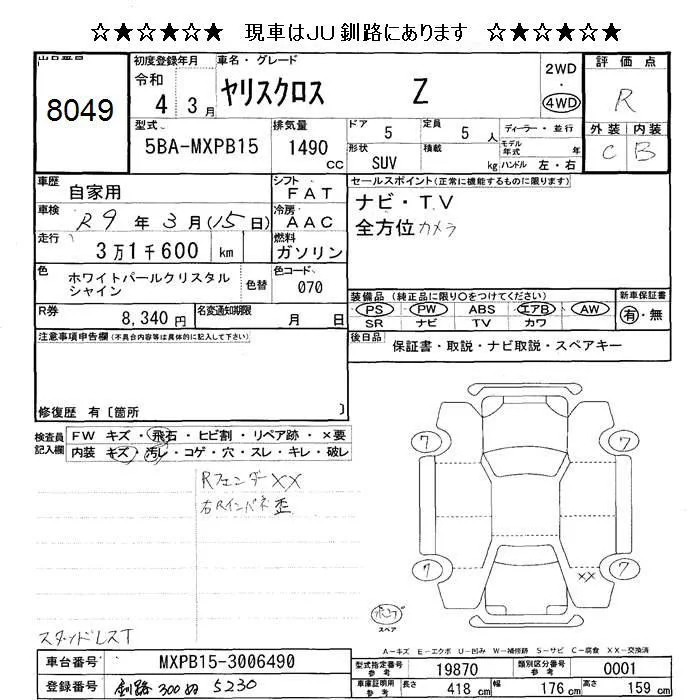 ☆★☆★☆★ 現車はJU釧路にあります ☆★☆★☆★
出品番号
8049
初度登録年月
令和
4年 3月
車名・グレード
ヤリスクロス Z
2WD
4WD
評価点
R
型式
5BA-MXPB15
排気量
1490 cc
ドア
5
定員
5人
形状
SUV
積載
kg
ディーラー・並行
モデル年式 年
ハンドル 左・右
外装 内装
C B
車歴
自家用
シフト
FAT
車検
R9年3月(15日)
冷房
AAC
走行
3万1千600 km
燃料
ガソリン
色
ホワイトパールクリスタルシャイン
色替
色コード
070
R券
8,340円
名変通知期限
月 日
セールスポイント(正常に機能するものに限ります)
ナビ・TV
全方位カメラ
装備品 (純正品に限り○をつけてください)
PS PW ABS エアB AW
SR ナビ TV カワ
新車保証書
有・無
後日品
保証書・取説・ナビ取説・スペアキー
注意事項申告欄(不具合内容等は具体的に記入して下さい)
修復歴 有〔箇所 〕
検査員記入欄
FW キズ・飛石・ヒビ割・リペア跡・×要
内装 キズ・汚レ・コゲ・穴・スレ・キレ・破レ
Rフェンダー××
右Rインパネ歪
スタッドレスT
7 7
7 7
××
スペア
A-キズ E-エクボ U-凹み W-補修跡 S-サビ C-腐食 XX-交換済
車台番号
MXPB15-3006490
登録番号
釧路 300 ぬ 5230
型式指定番号 参考
19870
類別区分番号 参考
0001
車庫証明用 参考
長さ 418cm
幅 176cm
高さ 159cm